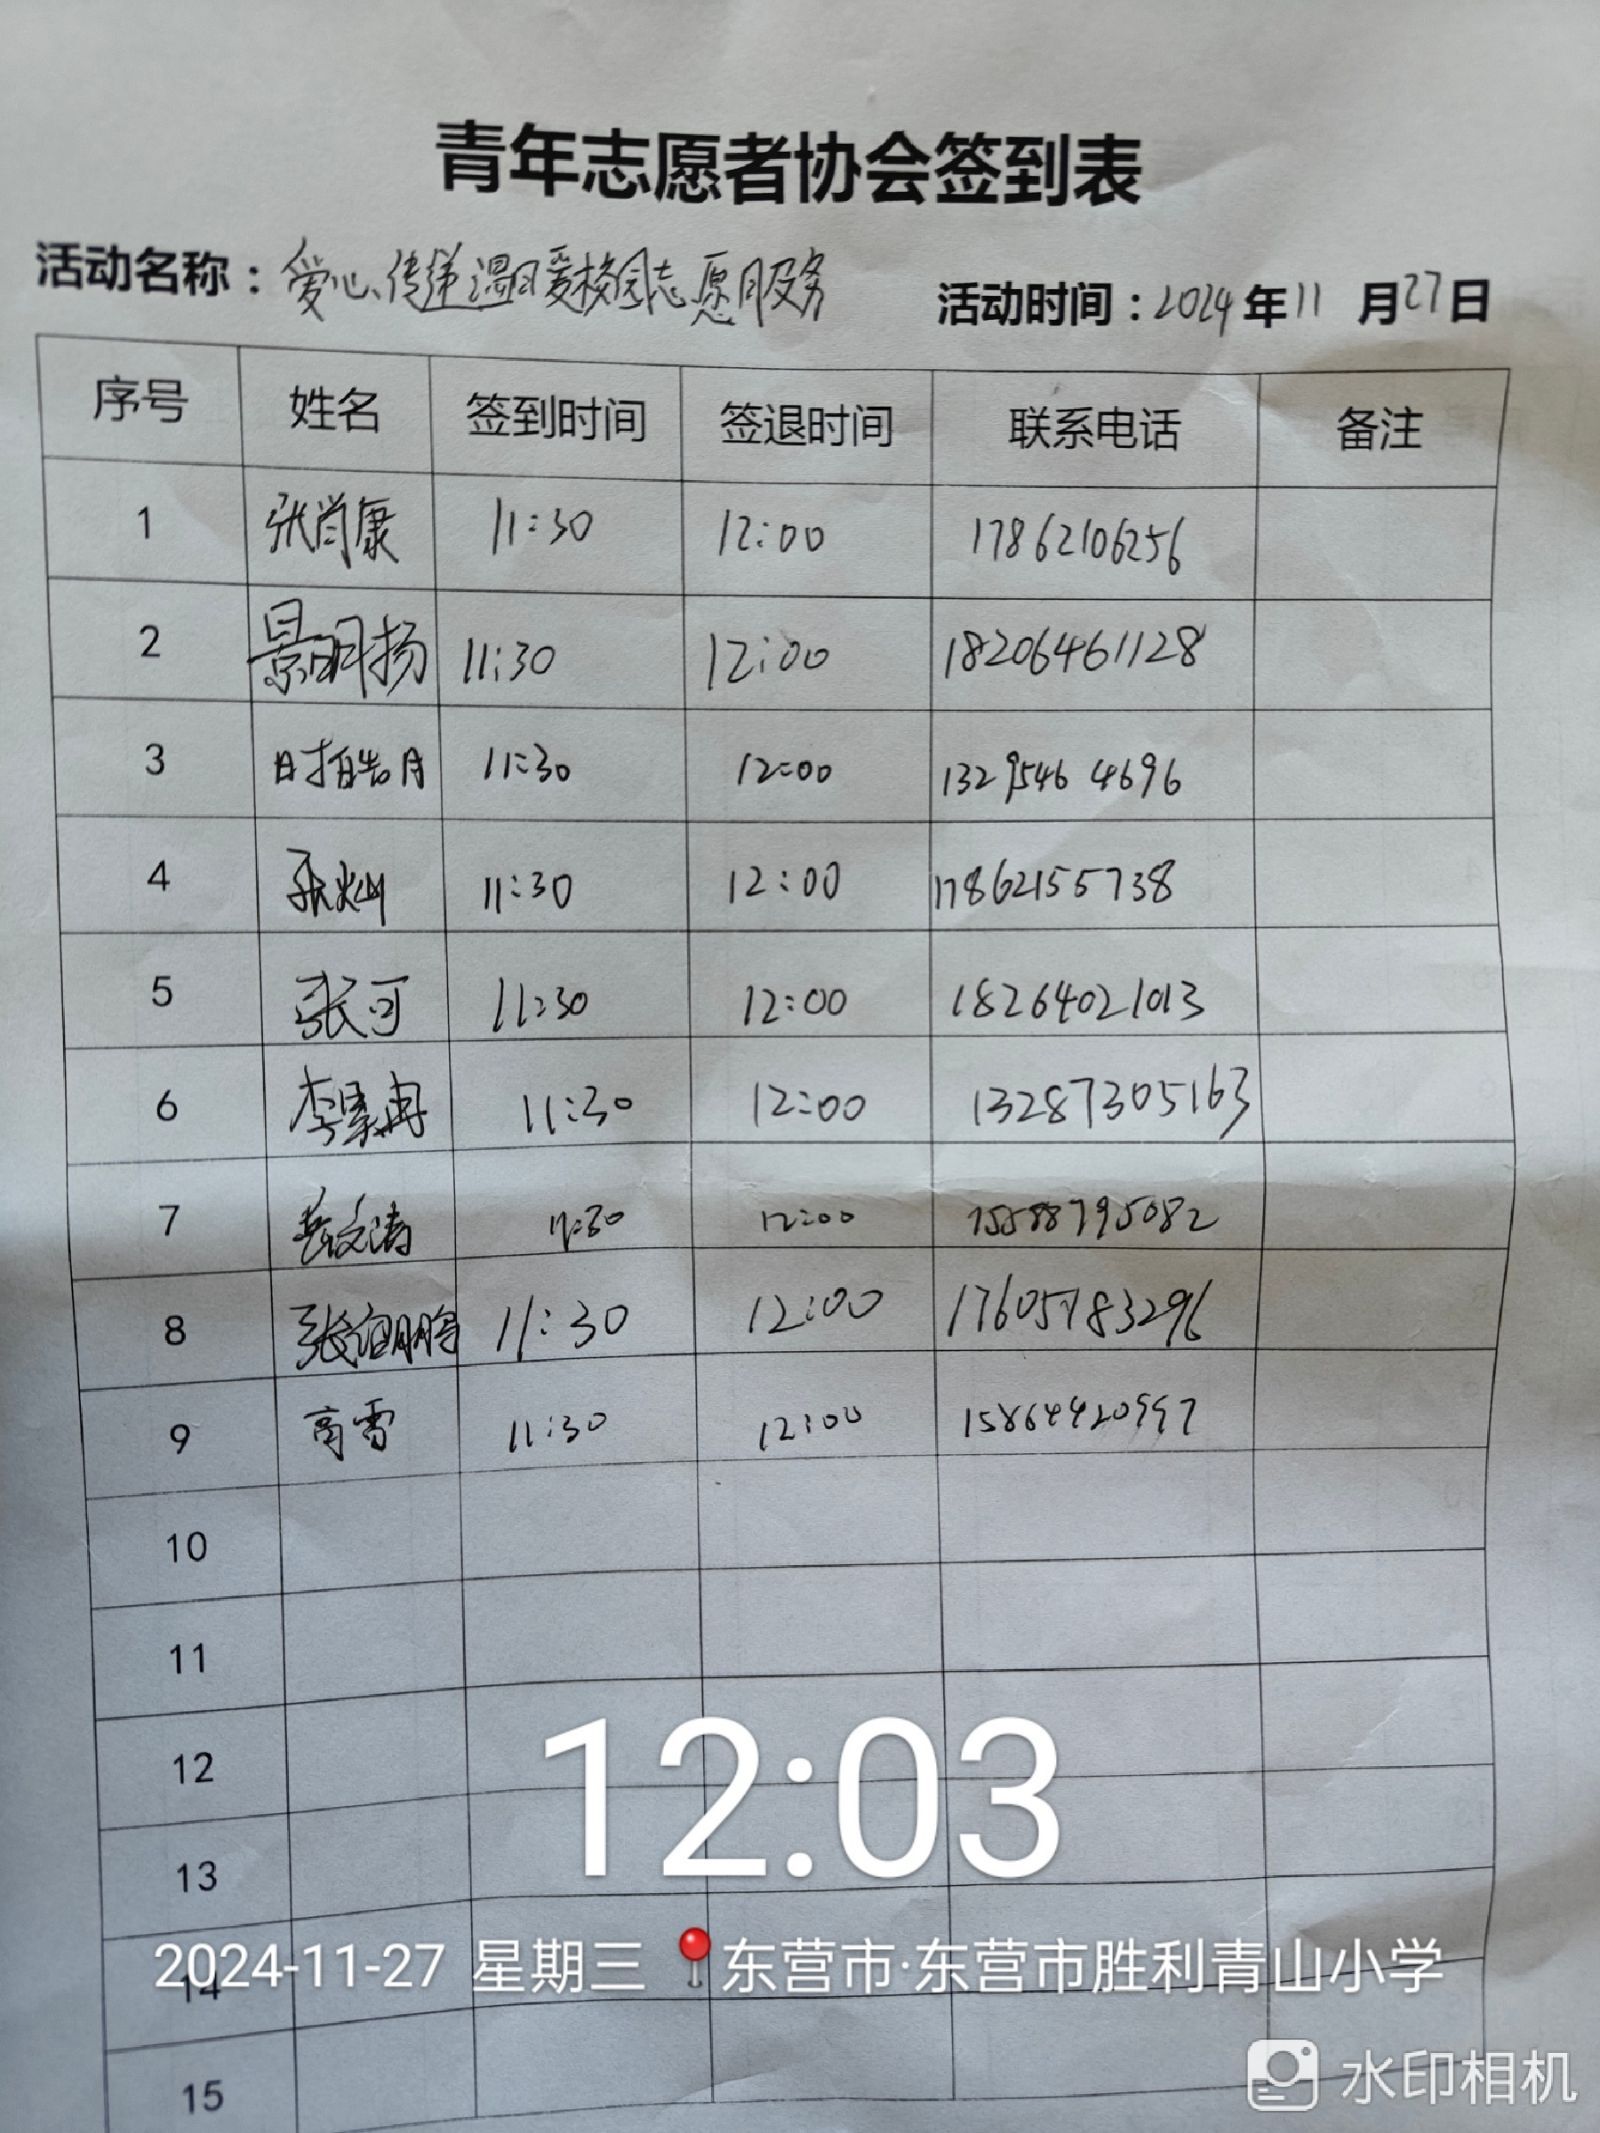 青年志愿者协会签到表
活动名称：爱心传递温暖校园志愿服务 活动时间：2024年11月27日
序号 姓名 签到时间 签退时间 联系电话 备注
1 张尚康 11:30 12:00 17862106256
2 景明扬 11:30 12:00 18206461128
3 时皓月 11:30 12:00 13295464696
4 张灿 11:30 12:00 17862155738
5 张可 11:30 12:00 18264021013
6 李 冉 11:30 12:00 13287305163
7 岳文涛 11:30 12:00 15588795082
8 张 鹏 11:30 12:00 17605783296
9 商雪 11:30 12:00
10
11
12
13
14
15
12:03
2024-11-27 星期三 东营市·东营市胜利青山小学
水印相机